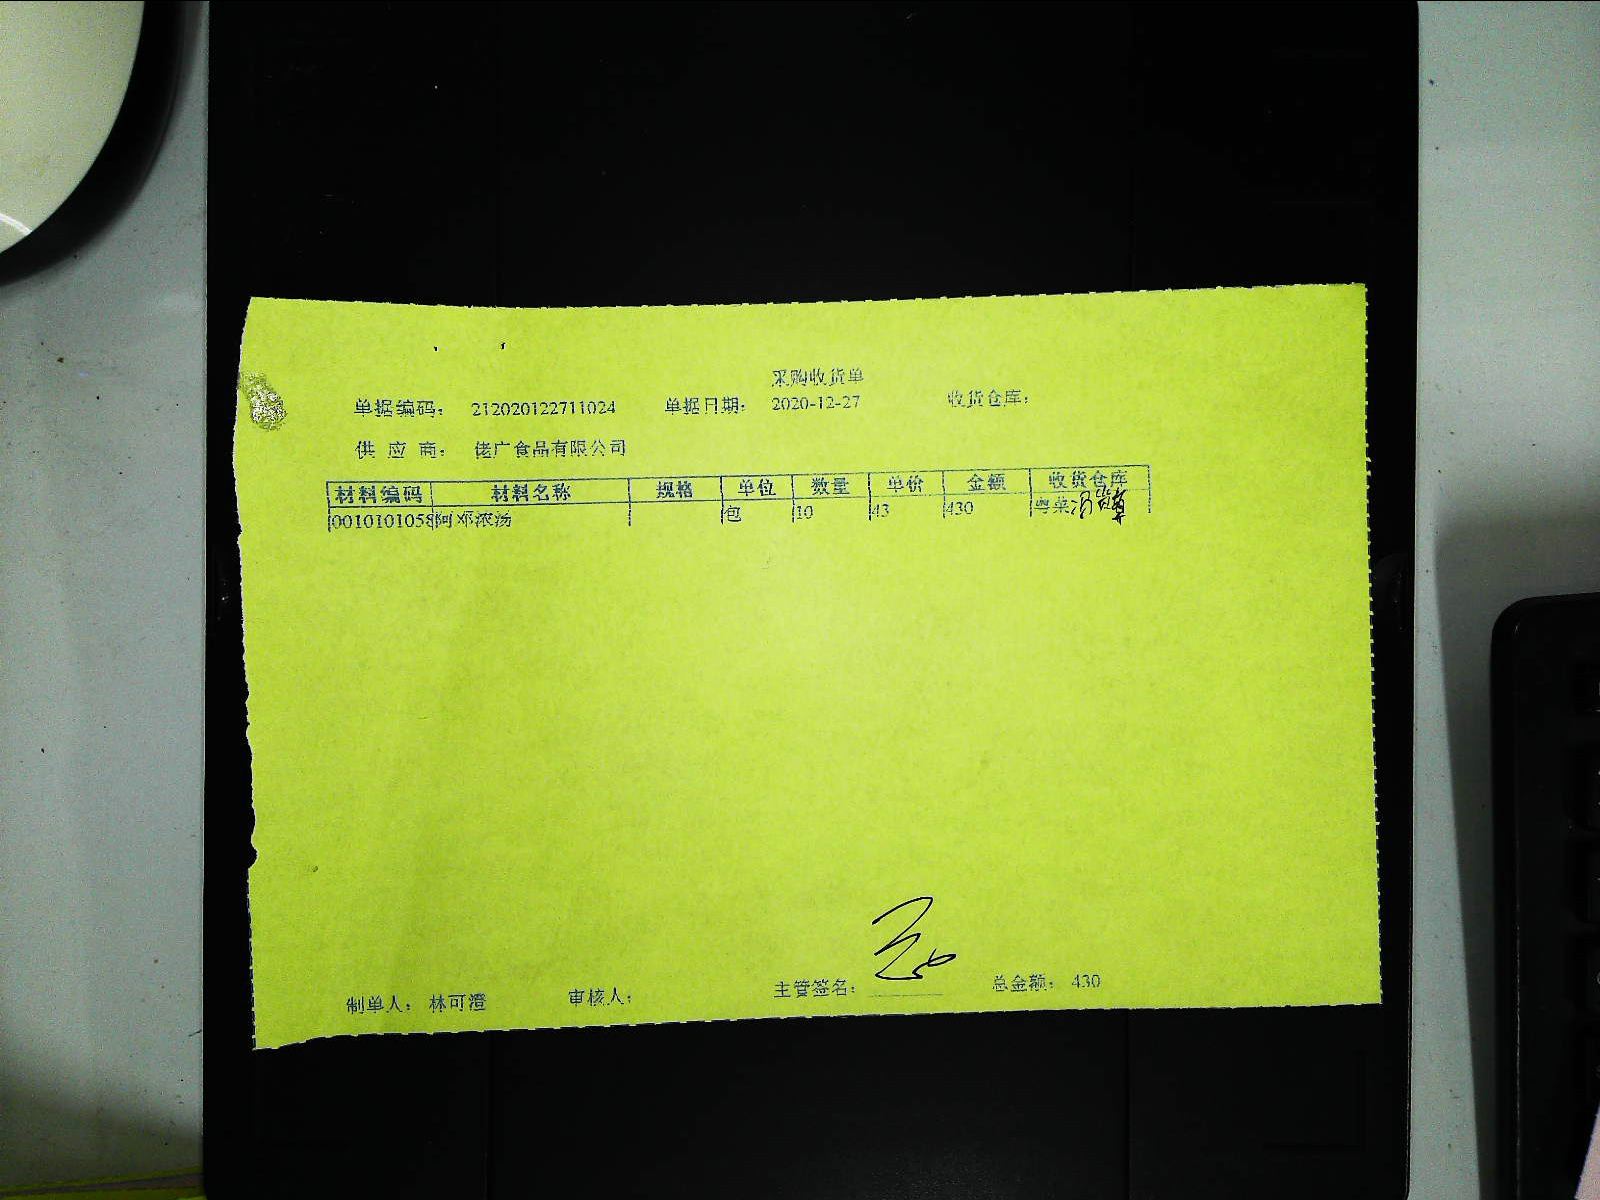 采购收货单
单据编码： 212020122711024 单据日期： 2020-12-27 收货仓库：
供 应 商： 佬广食品有限公司
材料编码 材料名称 规格 单位 数量 单价 金额 收货仓库
0010101058 阿邓浓汤 包 10 43 430 粤菜
制单人： 林可澄 审核人： 主管签名： 总金额： 430